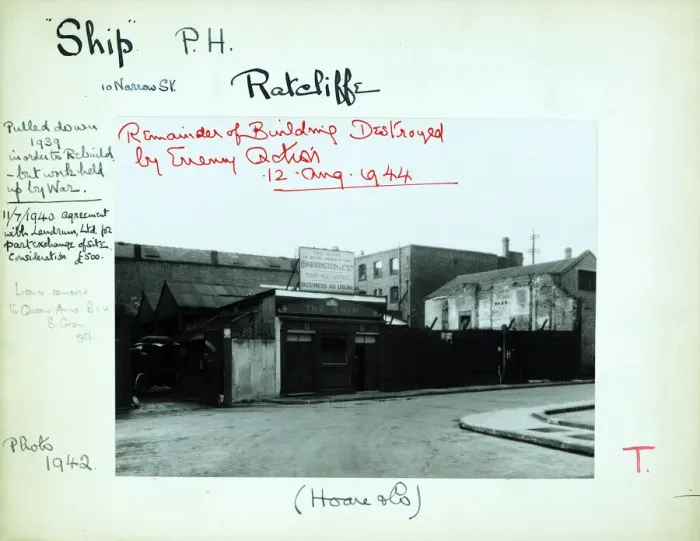 "Ship" P.H.
10 Narrow St.
Ratcliffe
Remainder of Building Destroyed
by Enemy Action
12. Aug. 1944
Pulled down
1939
in order to Rebuild
- but work held
up by War.
11/7/1940 agreement
with Lendrum Ltd. for
part exchange of site,
Consideration £500.
Licence removed
to Queen Anne
1951
BARRINGTON & CO
BUSINESS AS USUAL
THE SHIP
Photo
1942.
(Hoare & Co)
T.